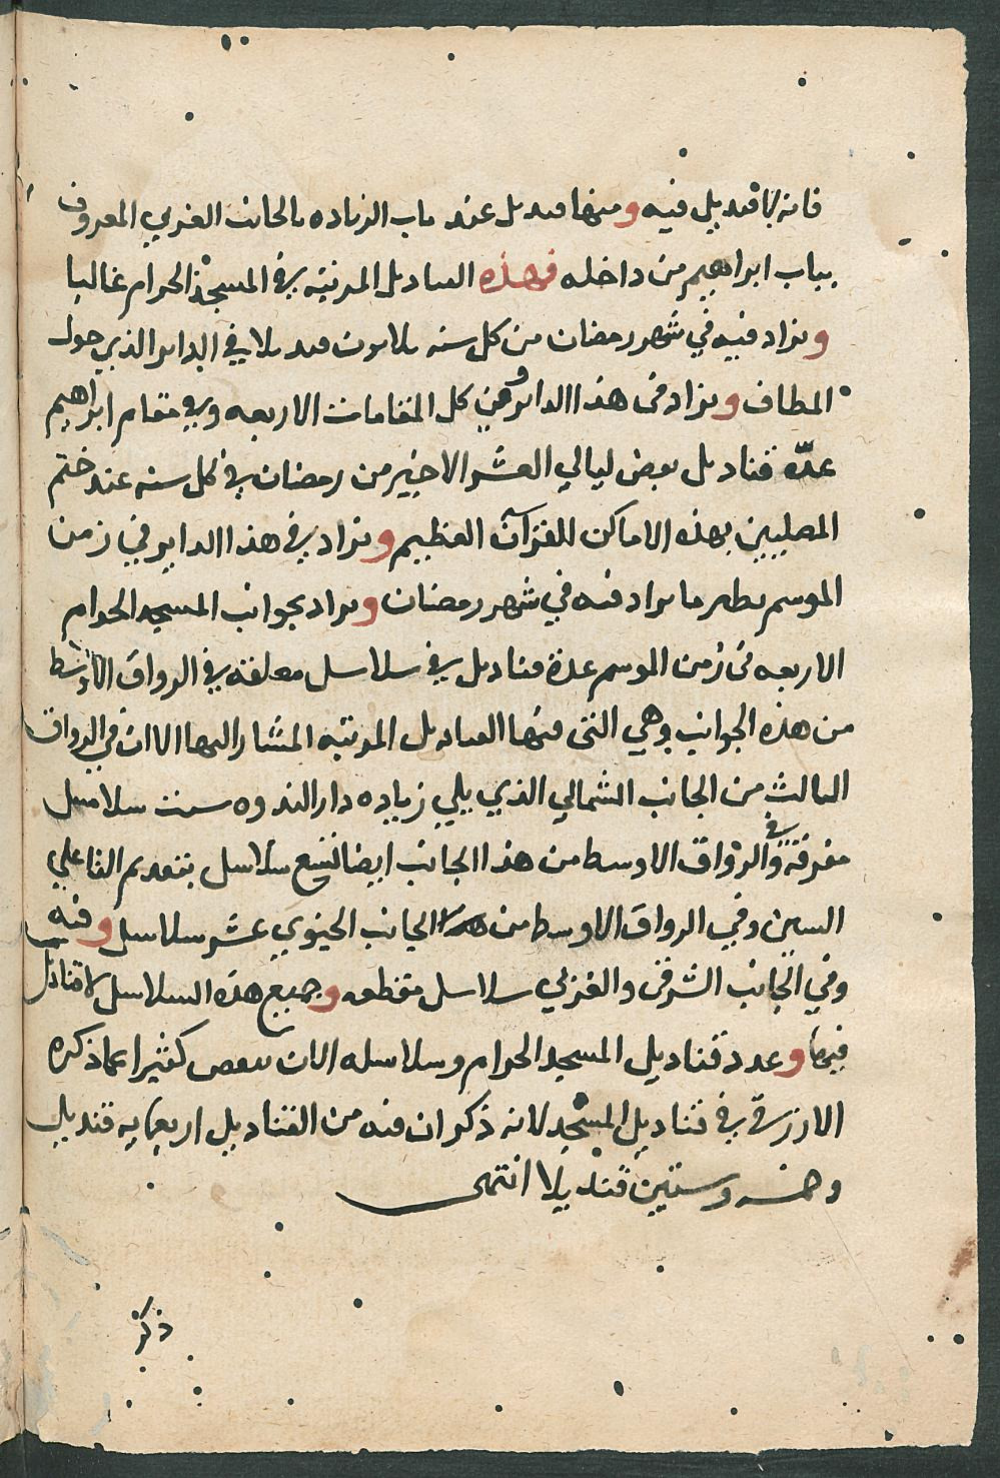 فانه لا قنديل فيه ومنها قنديل عند باب الزياده بالجانب الغربي المعروف
بباب ابراهيم من داخله فهذه القناديل المرتبة في المسجد الحرام غالبا
ويزاد فيه في شهر رمضان من كل سنه ثلاثون قنديلا في الداير الذي حول
المطاف ويزاد في هذا الداير وفي كل المقامات الاربعه وفي مقام ابراهيم
عدّه قناديل بعض ليالي العشر الاخير من رمضان في كل سنه عند ختم
المصليين بهذه الاماكن للقرآن العظيم ويزاد في هذا الداير في زمن
الموسم نظير ما يزاد فيه في شهر رمضان ويزاد بجوانب المسجد الحرام
الاربعه في زمن الموسم عدة قناديل في سلاسل معلقة في الرواق الاوسط
من هذه الجوانب وهي التي فيها القناديل المرتبه المشار اليها الا ان في الرواق
الثالث من الجانب الشمالي الذي يلي زياده دار الندوه ست سلاسل
مفرقة وفي الرواق الاوسط من هذا الجانب ايضا تسع سلاسل بتقديم التا علي
السين وفي الرواق الاوسط من الجانب الجنوبي عشر سلاسل وفيه
وفي الجانب الشرقي والغربي سلاسل مقطعه وجميع هذه السلاسل لا قناديل
فيها وعدد قناديل المسجد الحرام وسلاسله الان ينقص كثيرا عما ذكره
الازرقي في قناديل المسجد لانه ذكر ان فيه من القناديل اربعمايه قنديل
وخمسه وستين قنديلا انتهى
ذكر